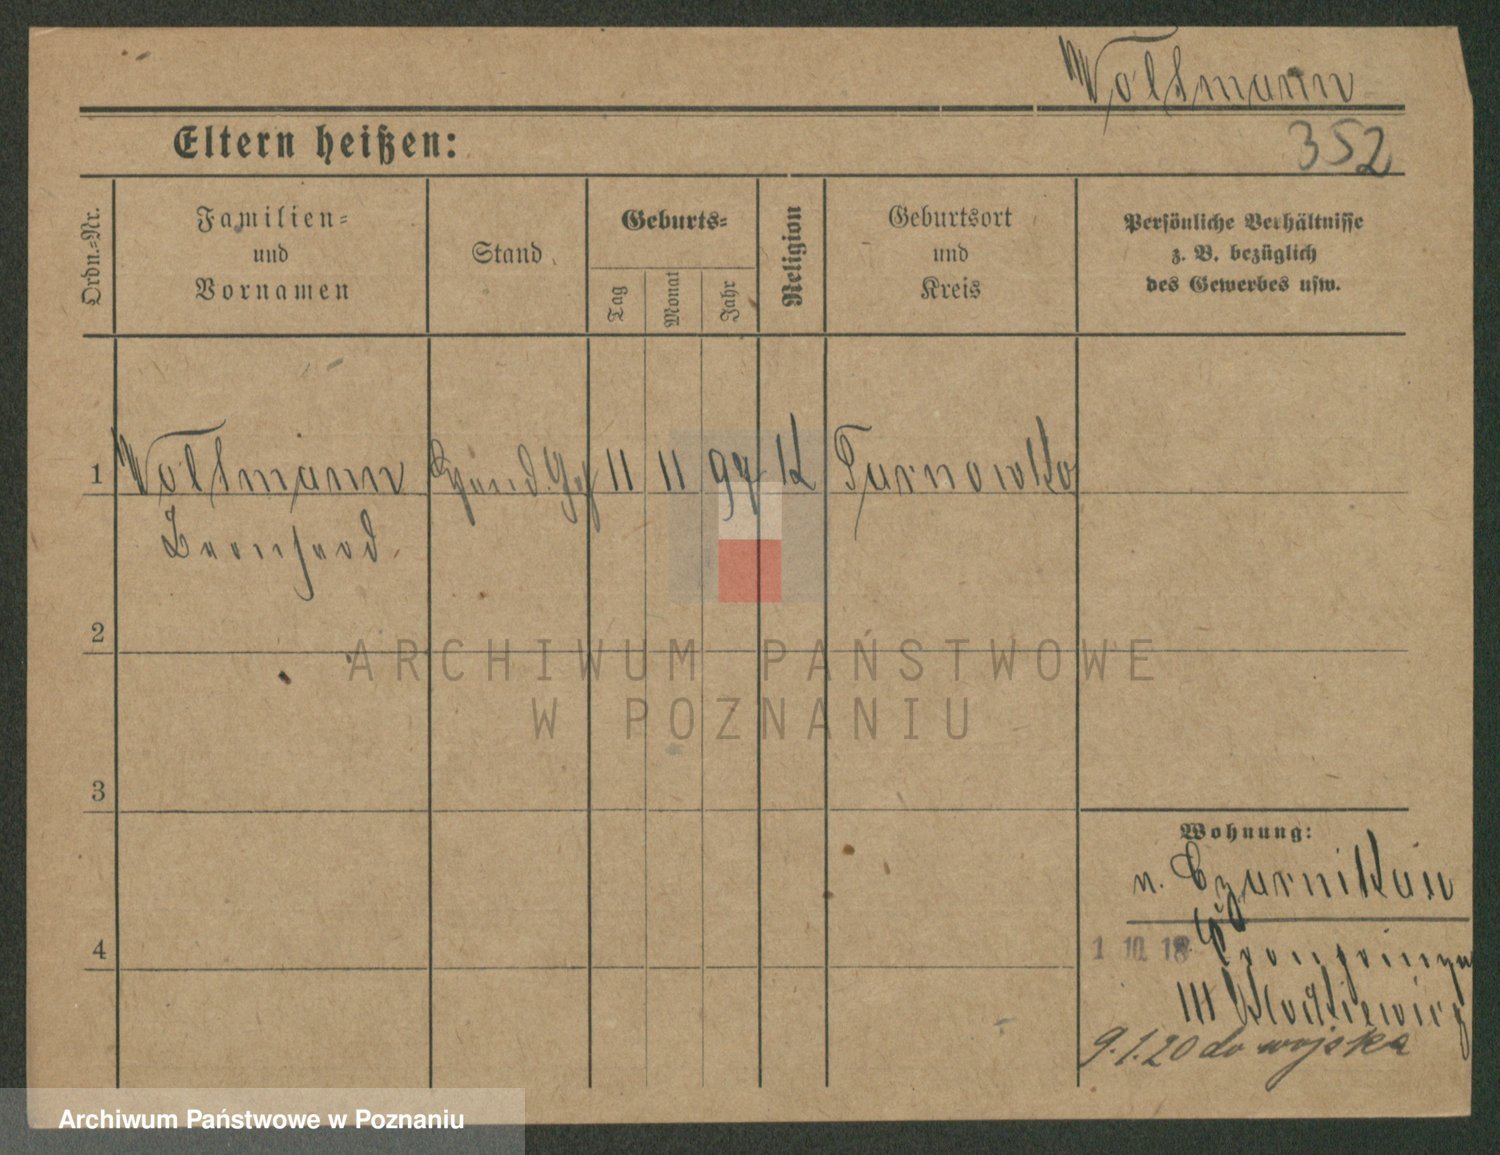 Woltmann
Eltern heißen:
352
Ordn.-Nr.
Familien-
und
Vornamen
Stand
Geburts-
Tag
Monat
Jahr
Religion
Geburtsort
und
Kreis
Persönliche Verhältnisse
z. B. bezüglich
des Gewerbes usw.
1
Woltmann
11 11 97 K
Tarnowko
Bernhard
2
ARCHIWUM PAŃSTWOWE
W POZNANIU
3
Wohnung:
n. Czarnikau
4
1 10 18
III
9.1.20 do wojska
Archiwum Państwowe w Poznaniu